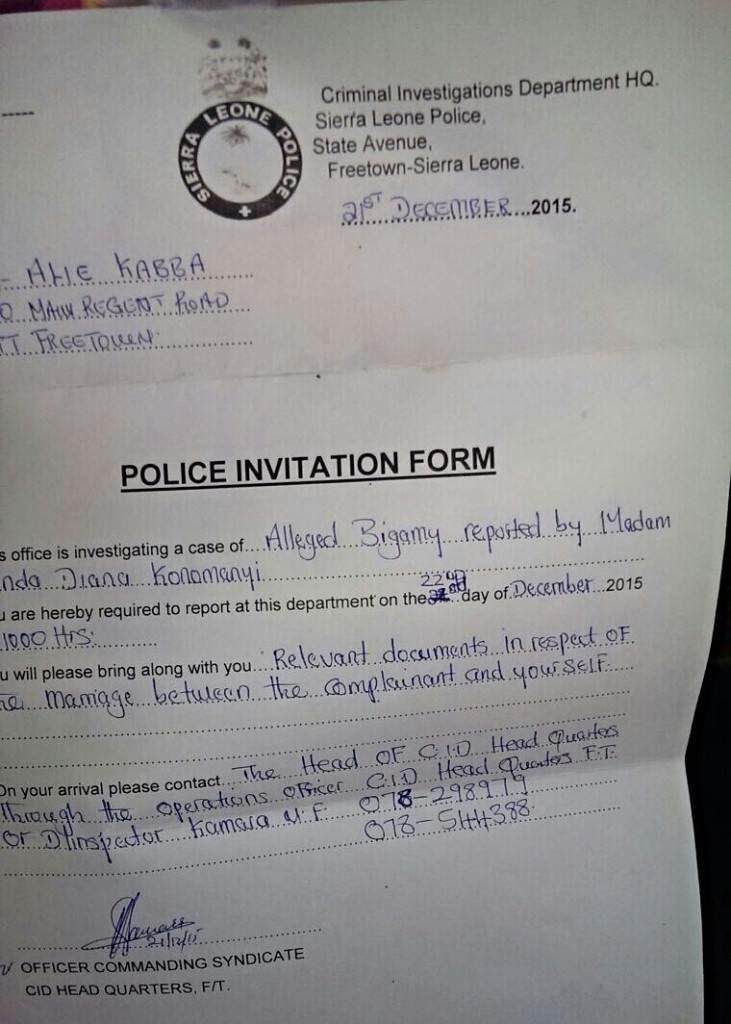 SIERRA LEONE POLICE
Criminal Investigations Department HQ.
Sierra Leone Police,
State Avenue,
Freetown-Sierra Leone.
21ST DECEMBER...2015.
- ALIE KABBA
0 MAIN REGENT ROAD
TT FREETOWN.
POLICE INVITATION FORM
s office is investigating a case of....Alleged Bigamy reported by Madam
nda Diana Konomanyi
22nd
u are hereby required to report at this department on the day of December...2015
1000 Hrs:
u will please bring along with you...Relevant documents in respect OF
he marriage between the complainant and yourself.
On your arrival please contact...The Head OF C.I.D Head Quarters
through the Operations Officer C.I.D Head Quarters F.T.
or D/Inspector Kamara M.F. 078-298979
078-544388.
21/12/15
OFFICER COMMANDING SYNDICATE
CID HEAD QUARTERS, F/T.